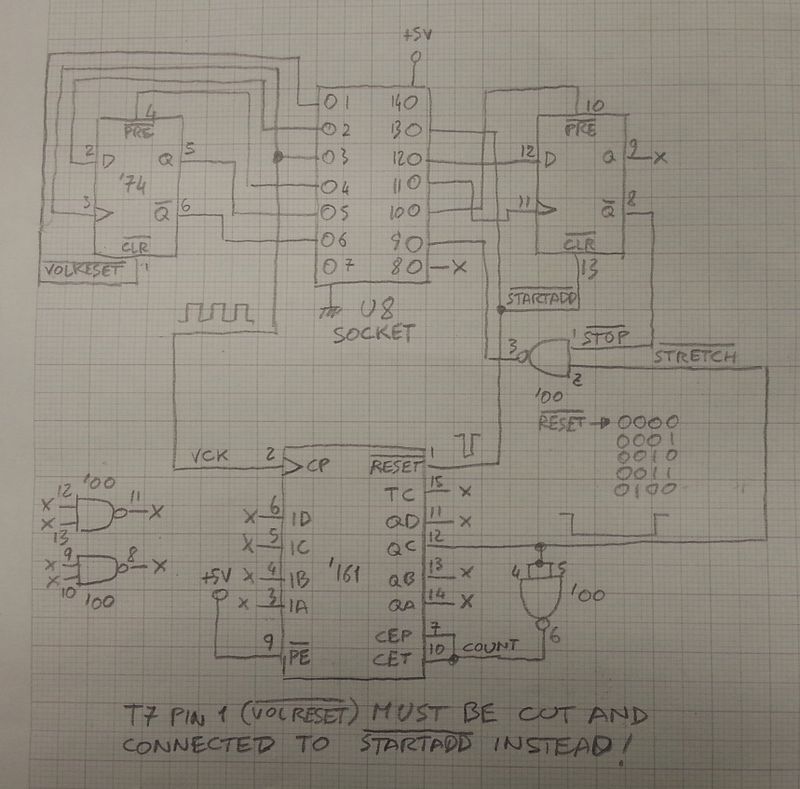 +5V
4
PRE
2 D Q 5
'74
3 Q 6
CLR
VOLRESET 1
O1 14O
O2 13O
O3 12O
O4 11O
O5 10O
O6 9O
O7 8O X
U8
SOCKET
10
PRE
12 D Q 9 X
11 Q 8
CLR
13
STARTADD
3 1 STOP
STRETCH
2
'00
RESET → 0000
0001
0010
0011
0100
VCK 2 CP RESET 1
TC 15 X
X 6 1D QD 11 X
X 5 1C QC 12
X 4 1B '161 QB 13 X
X 3 1A QA 14 X
+5V
CEP 7
9 PE CET 10 COUNT
4 5
'00
6
'00
X 12 11 X
X 13
X 9 8 X
X 10
'00
T7 PIN 1 (VOLRESET) MUST BE CUT AND
CONNECTED TO STARTADD INSTEAD!